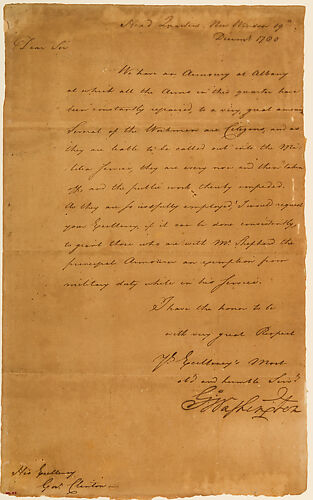 Head Quarters New Windsor 19th
Decemr 1780
Dear Sir
We have an Armoury at Albany
at which all the Arms in this quarter have
been constantly repaired, to a very great amount
Several of the Workmen are Citizens, and as
they are liable to be called out into the Mi-
litia Service, they are every now and then taken
off, and the public work thereby impeded.
As they are so usefully employed, I would request
your Excellency, if it can be done consistently,
to grant those who are with Mr Shephard the
principal Armourer an exemption from
military duty while in his Service.
I have the honor to be
with very great Respect
Yr Excellency's Most
obt and humble Servt
Go Washington
His Excellency
Govr Clinton